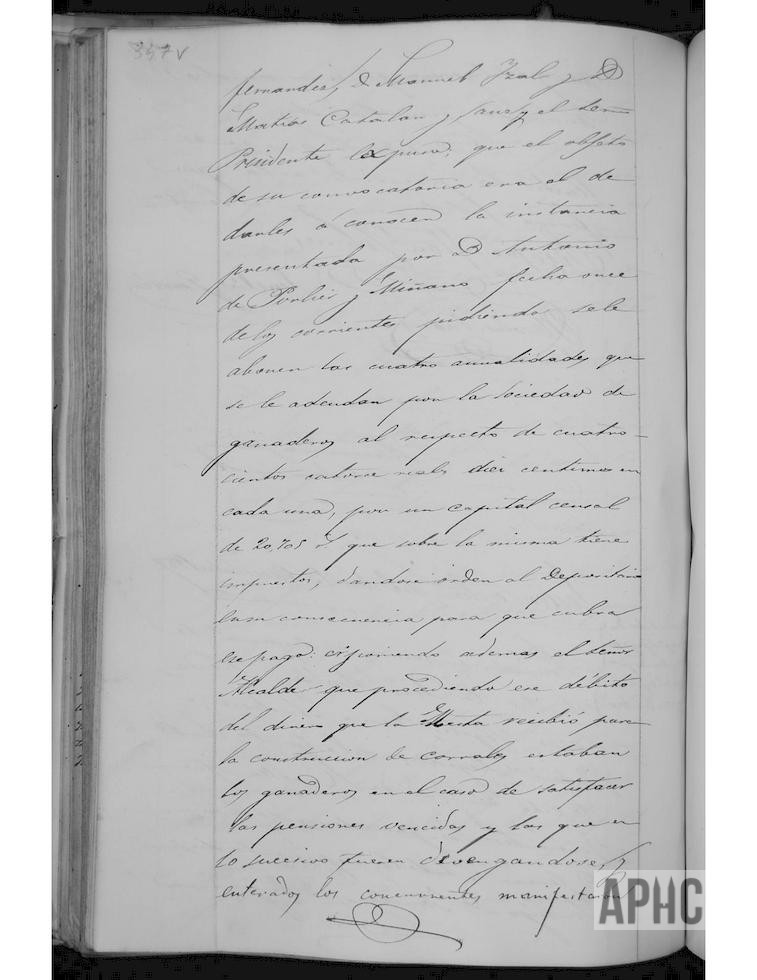 347 v
fernandez, D Manuel Yzal y D
Matias Catalan y Sanz, y el Señor
Presidente Expuso, que el objeto
de su convocatoria era el de
darles á conocer la instancia
presentada por D Antonio
de Porlier y Miñano fecha once
de los corrientes pidiendo se le
abonen las cuatro anualidades que
se le adeudan por la Sociedad de
ganaderos al respecto de cuatro-
cientos catorce reales diez centimos en
cada una, por un capital censal
de 20,705 rs. que sobre la misma tiene
impuestos, dandose orden al Depositario
en su consecuencia para que cubra
ese pago: esponiendo ademas el Señor
Alcalde que procediendo ese débito
del dinero que la Mesta recibió para
la construccion de corrales estaban
los ganaderos en el caso de satisfacer
las pensiones vencidas y las que en
lo sucesivo fueren devengandose, y
enterados los concurrentes manifestaron
APHC